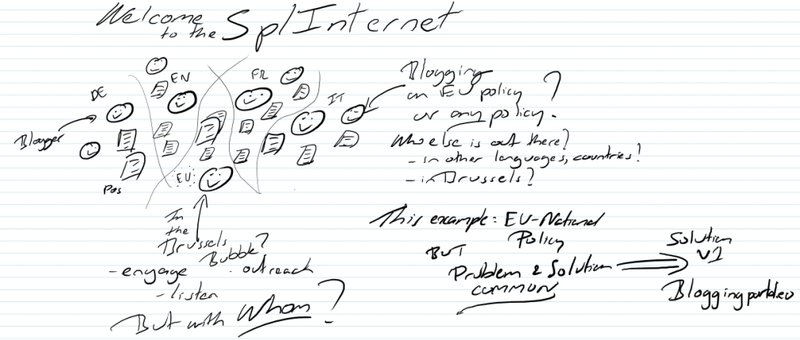 Welcome
to the SplInternet
DE
EN
FR
IT
Blogger
Pos
EU
Blogging
on EU policy
or any policy.
?
Who else is out there?
- in other languages, countries?
- in Brussels?
In
the
Brussels
Bubble?
- engage
- outreach
- listen
But with Whom?
This example: EU-National
Policy
BUT
Problem & Solution
COMMON
Solution
V1
Bloggingportal.eu